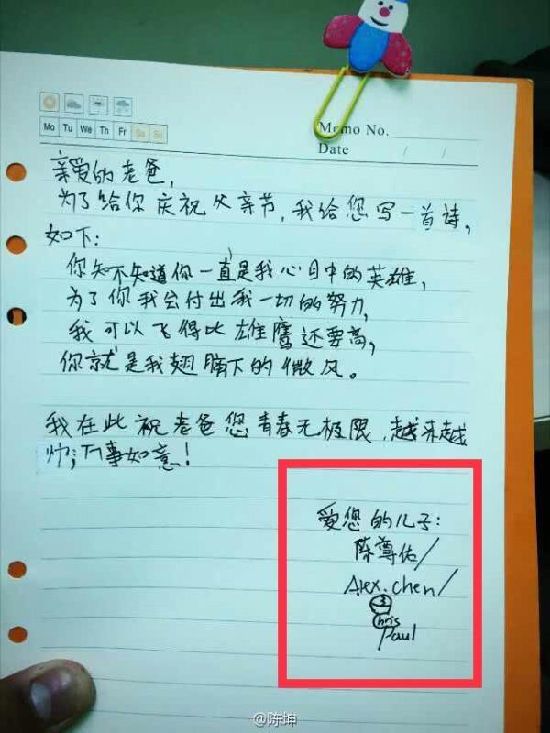 Mo Tu We Th Fr Sa Su
Memo No.
Date / /
亲爱的老爸,
为了给你庆祝父亲节,我给您写一首诗,
如下:
你知不知道你一直是我心目中的英雄,
为了你我会付出我一切的努力,
我可以飞得比雄鹰还要高,
你就是我翅膀下的微风。
我在此祝老爸您青春无极限,越来越
帅,万事如意!
爱您的儿子:
陈尊佑/
Alex.chen/
3
Chris
Paul
@陈坤